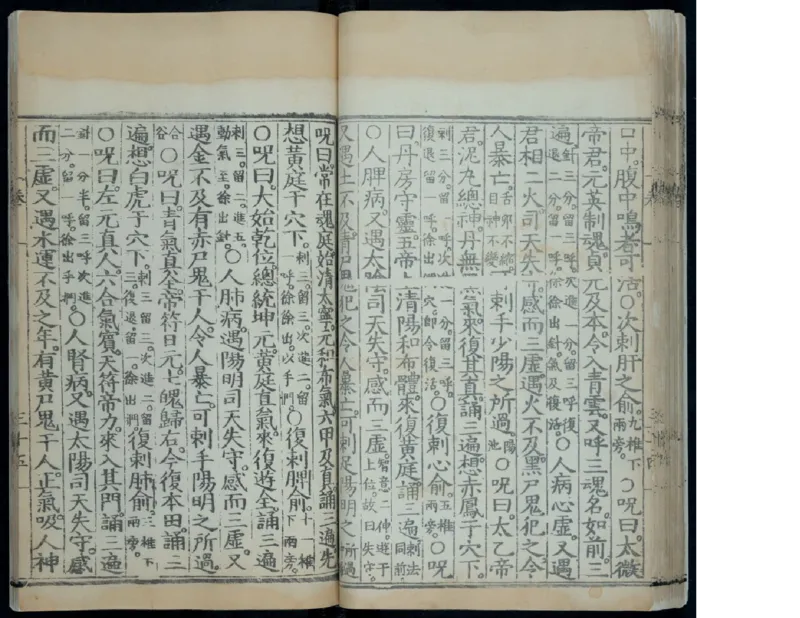 口中。腹中鳴者可治。〇次刺肝之俞。九椎下兩旁。〇呪曰。太微
帝君。元英制魂。貞元及本。令入青雲。又呼三魂名如前三
遍。針三分。留三呼。復退二分。留一呼。徐徐出針。氣及復活。〇人病心虛。又遇
君相二火司天失守。感而三虛。遇火不及。黑尸鬼犯之。令
人暴亡。舌卵不縮。目神不變。可刺手少陽之所過。陽池〇呪曰。太乙帝
君。泥丸總神。丹無黑氣。來復其真。誦三遍。想赤鳳于穴下。
刺三分。留一呼。次進一分。留三呼。復退留一呼。徐出捫穴。即令復活。〇復刺心俞。五椎兩旁。〇呪
曰。丹房守靈。五帝上清。陽和布體。來復黃庭。誦三遍。刺法同前
〇人脾病。又遇太陰司天失守。感而三虛。智意二神。遊于上位。故曰失守。
又遇土不及。青尸鬼犯之。令人暴亡。可刺足陽明之所過。
呪曰。常在魂庭。始清太寧。元和布氣。六甲及真。誦三遍。先
想黃庭于穴下。刺三。留三。次進二。留一呼。徐徐出。以手捫。〇復刺脾俞。十一椎下兩旁。
〇呪曰。大始乾位。總統坤元。黃庭直氣。來復遊全。誦三遍
刺三。留二。進五。動氣至。徐出針。〇人肺病。遇陽明司天失守。感而三虛。又
遇金不及。有赤尸鬼干人。令人暴亡。可刺手陽明之所過。
合谷〇呪曰。青氣真全。帝符日元。七魄歸右。令復本田。誦三
遍。想白虎于穴下。刺三。留三。次進二。留三。復退。留一。徐出捫。復刺肺俞。三椎下兩旁。
〇呪曰。左元真人。六合氣賓。天符帝力。來入其門。誦三遍
針一分半。留三呼。次進二分。留一呼。徐出手捫。〇人腎病。又遇太陽司天失守。感
而三虛。又遇水運不及之年。有黃尸鬼干人正氣。吸人神